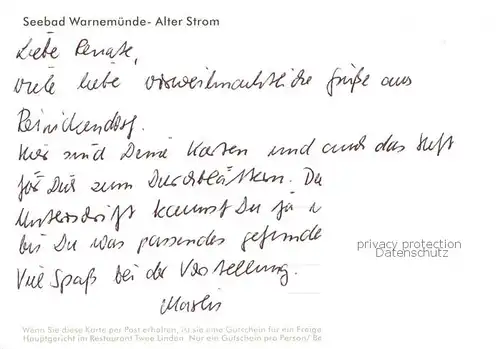 Seebad Warnemünde- Alter Strom
Liebe Renate,
viele liebe vorweihnachtliche Grüße aus
Reinickendorf.
Hier sind Deine Karten und auch das Heft
für Dich zum Durchblättern. Die
Unterschrift kannst Du ja
bis Du was passendes gefunde
Viel Spaß bei der Vorstellung.
privacy protection
Datenschutz
Wenn Sie diese Karte per Post erhalten, ist sie eine Gutschein für ein Freige
Hauptgericht im Restaurant Twee Linden. Nur ein Gutschein pro Person/ Be